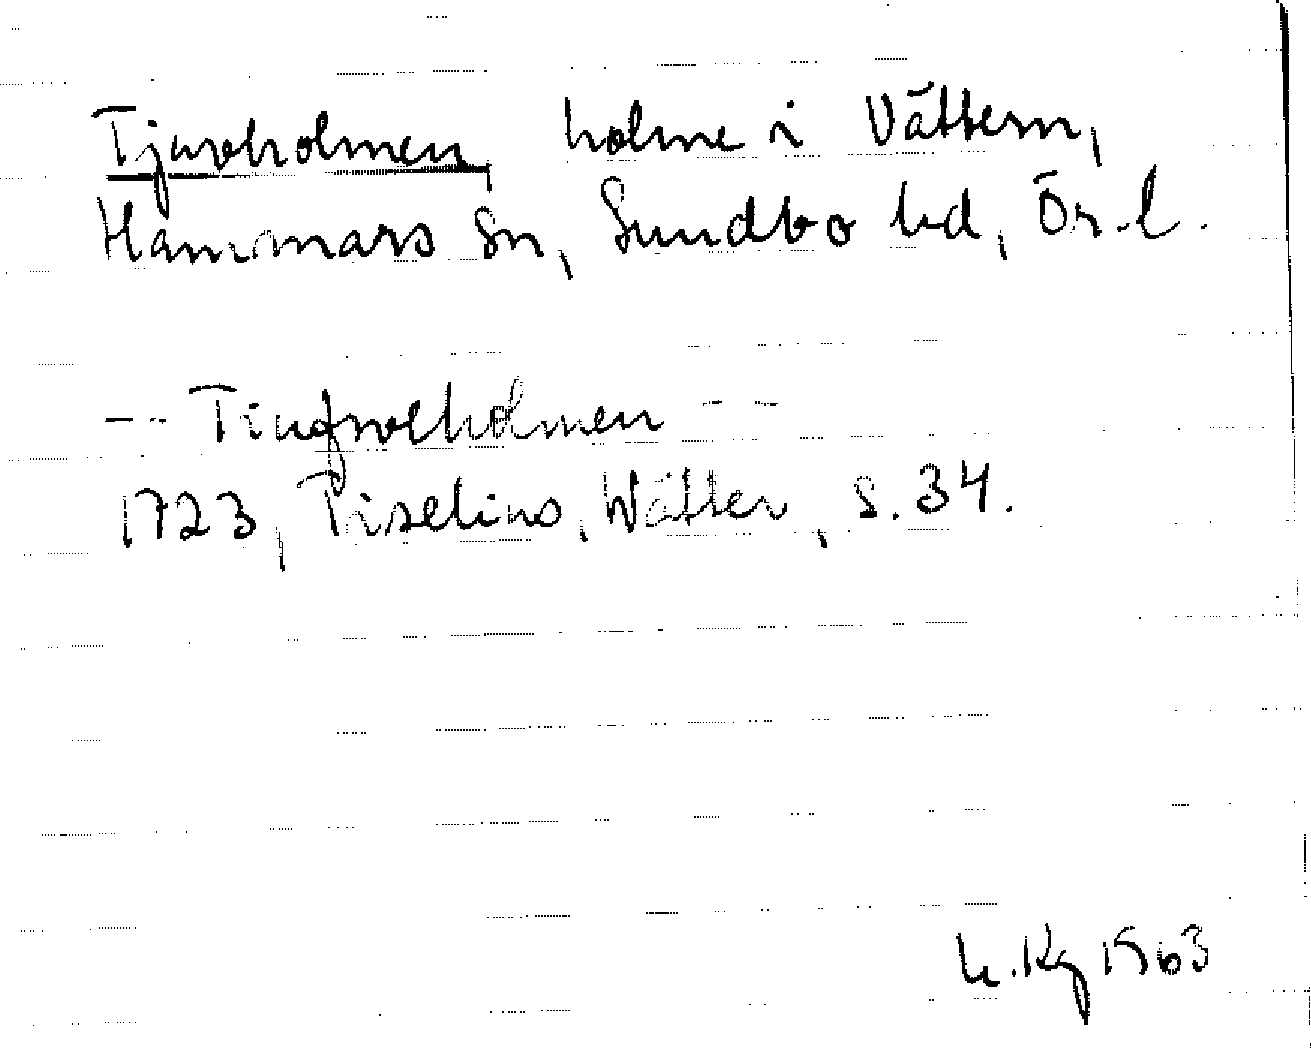 Tjuvholmen, holme i Vättern,
Hammars sn, Sundbo hd, Ör. l.
-- Tiufweholmen --
1723, Tiselius, Wätter, s. 34.
K. Kg 1963